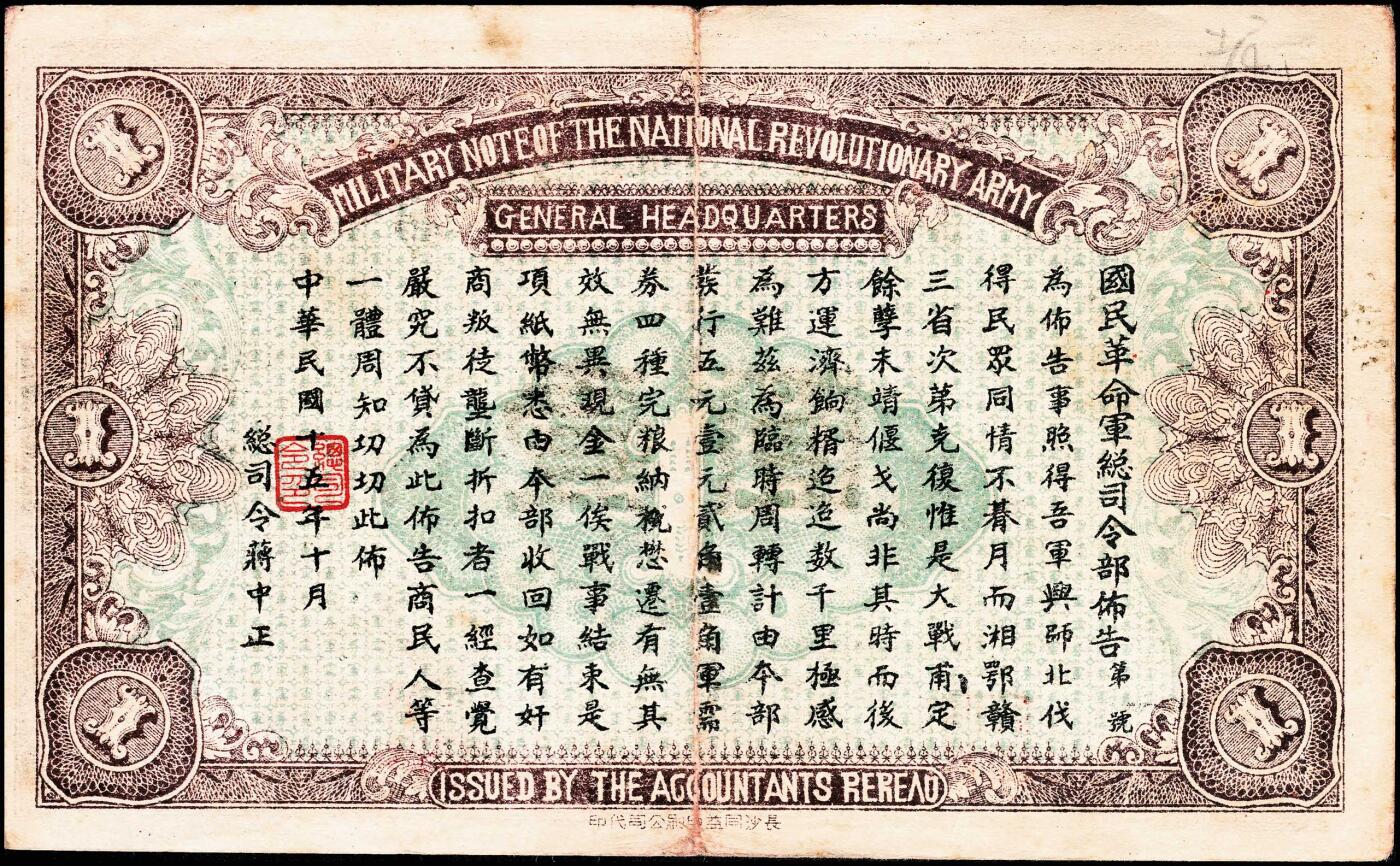 MILITARY NOTE OF THE NATIONAL REVOLUTIONARY ARMY
GENERAL HEADQUARTERS
1
1
國民革命軍総司令部佈告 第 號
為佈告事照得吾軍興師北伐
得民眾同情不朞月而湘鄂贛
三省次第克復惟是大戰甫定
餘孽未靖偃戈尚非其時而後
方運濟餉糈迢迢数千里極感
為難茲為臨時周轉計由本部
發行五元壹元貳角壹角軍需
券四種完粮納税懋遷有無其
效無異現金一俟戰事結束是
項紙幣悉由本部收回如有奸
商叛徒壟斷折扣者一經查覺
嚴究不貸為此佈告商民人等
一體周知切切此佈
中華民國十五年十月
総司令蔣中正
1
1
1
1
ISSUED BY THE ACCOUNTANTS REREAD
長沙同益印刷公司代印